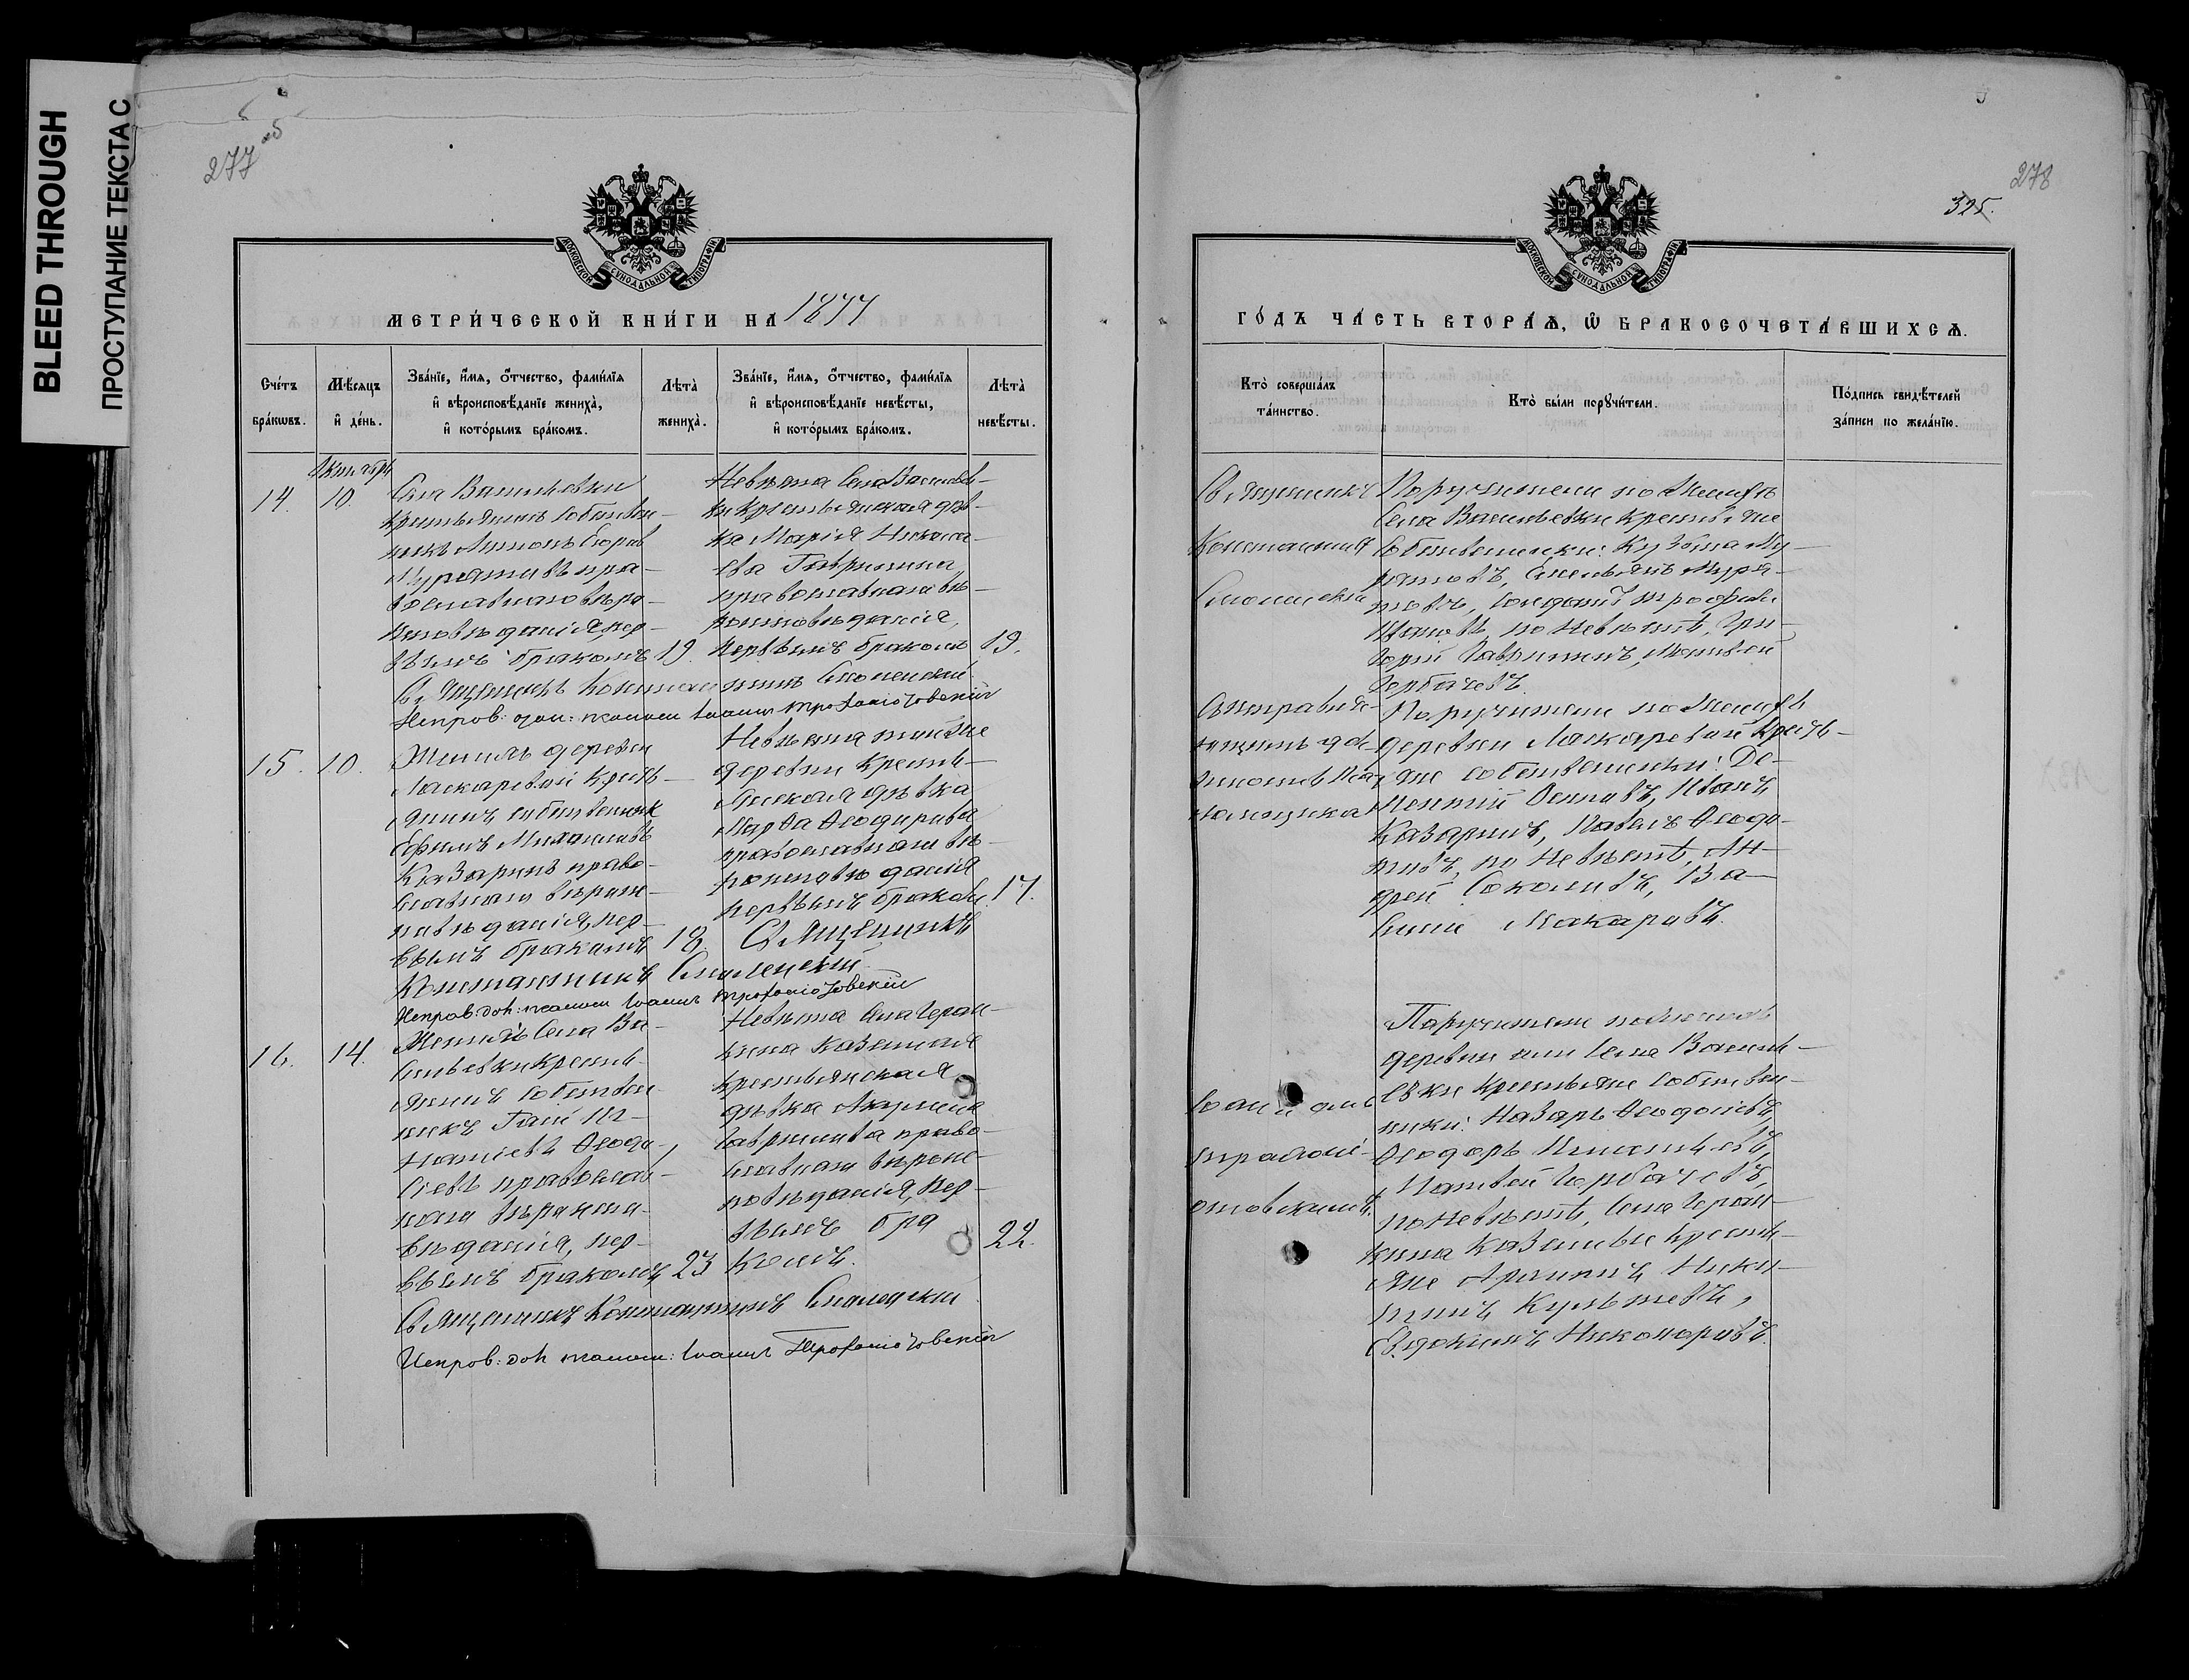 BLEED THROUGH
ПРОСТУПАНИЕ ТЕКСТА С
277 об
МОСКОВСКОЙ СѴНОДАЛЬНОЙ ТИПОГРАФІИ
МЕТРИ́ЧЕСКОЙ КНИ́ГИ НА 1877
Сче́тъ бра́кѡвъ.
Мѣ́сяцъ и҆ де́нь.
Зва́нїе, и҆́мя, ѻ҆́тчество, фами́лїя и҆ вѣроисповѣ́данїе жениха̀, и҆ кото́рымъ бра́комъ.
Лѣ́та̀ жениха̀.
Зва́нїе, и҆́мя, ѻ҆́тчество, фами́лїя и҆ вѣроисповѣ́данїе невѣ́сты, и҆ кото́рымъ бра́комъ.
Лѣ́та̀ невѣ́сты.
Октября
14.
10.
Села Васильевки
крестьянинъ собствен-
никъ Антонъ
Муратовъ пра-
вославнаго вѣро-
исповѣданія, пер-
вымъ бракомъ
19.
Невѣста села Василье-
ки крестьянская дѣв-
ка Марія Никола-
ева Гаврилина
православнаго вѣ-
роисповѣданія,
первымъ бракомъ
19.
Священникъ Константинъ Смоленскій
Исправ: псалом Іоаннъ
15.
10.
Женихъ деревни
Макаревой кресть-
янинъ собственникъ
Ефимъ Михайловъ
Казаринъ право-
славнаго вѣроис-
повѣданія, пер-
вымъ бракомъ
18.
Невѣста той же
деревни кресть-
янская дѣвка
Марѳа Ѳеодорова
православнаго вѣ-
роисповѣданія
первымъ бракомъ
17.
Священникъ
Константинъ Смоленскій
Исправ: дол: псалом Іоаннъ
16.
14.
Женихъ села Ва-
сильевки кресть-
янинъ собствен-
никъ Гаій Иг-
натіевъ Ѳеодо-
сіевъ православ-
наго вѣроиспо-
вѣданія, пер-
вымъ бракомъ
23
Невѣста села Геран-
кина казенная
крестьянская
дѣвка Акулина
Гаврилова право-
славнаго вѣроис-
повѣданія, пер-
вымъ бра
комъ.
22.
Священникъ Константинъ Смоленскій
Исправ: дол псалом: Іоаннъ
278
325.
МОСКОВСКОЙ СѴНОДАЛЬНОЙ ТИПОГРАФІИ
ГО́ДЪ ЧА́СТЬ ВТОРА́Ѧ, Ѽ БРАКОСОЧЕТА́ВШИХСѦ.
Кто̀ соверша́лъ та́инство.
Кто̀ бы́ли порꙋчи́тели.
По́дпись свидѣ́телей за́писи по жела́нїю.
Священникъ
Константинъ
Смоленскій
Поручители по женихѣ
села Васильевки крестьяне
собственники: Кузьма Му-
ратовъ, Емельянъ Мура-
товъ, солдатъ Трофимъ
Ивановъ, по невѣстѣ, Гри-
горій Гаврилинъ, Матвей
Горбачевъ.
Поручители по женихѣ
деревни Макаревой кресть-
яне собственники: Де-
ментій Осиповъ, Иванъ
Казаринъ, Павелъ Ѳеодо-
товъ, по невѣстѣ, Ан-
дрей Соколовъ, Ва-
силій Макаровъ.
Поручители по женихѣ
деревни или села Василь-
евки крестьяне собствен-
ники: Назаръ Ѳеодосіевъ,
Ѳеодоръ Игнатьевъ,
Матвей Горбачевъ,
по невѣстѣ, села Геран-
кина казенные кресть-
яне Архипъ Ники-
тинъ
Евдокимъ Никоноровъ.